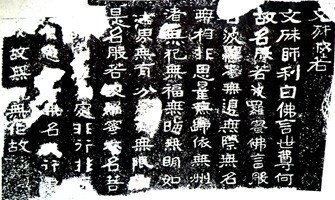 文殊般若
文殊師利白佛言世尊何
故名般若波羅蜜佛言般
若波羅蜜無邊無際無名
無相非思量無歸依無洲
渚無犯無福無晦無明如
法界無有分無限
是名般若波羅蜜名菩
處非行
名非行
故無無作故